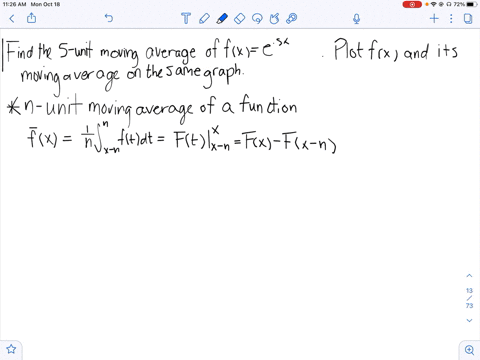 11:26 AM Mon Oct 18
72%
Find the 5-unit moving average of f(x)=e^.5x . Plot f(x) and its
moving average on the same graph.
*n-unit moving average of a function
f̄(x) = 1/n ∫_{x-n}^{n} f(t)dt = F(t)|_{x-n}^{x} = F(x) - F(x-n)
13
/
73